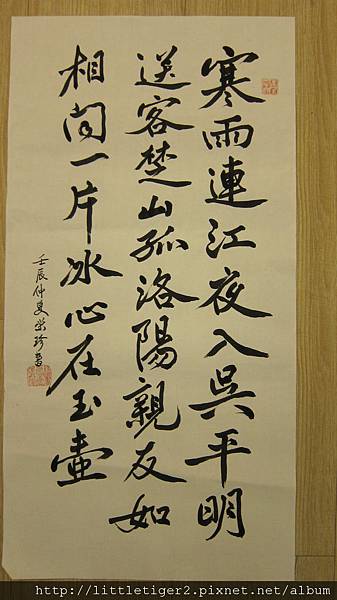 寒雨連江夜入吳平明
送客楚山孤洛陽親友如
相問一片冰心在玉壺
壬辰仲夏榮珍書
http://littletiger2.pixnet.net/album